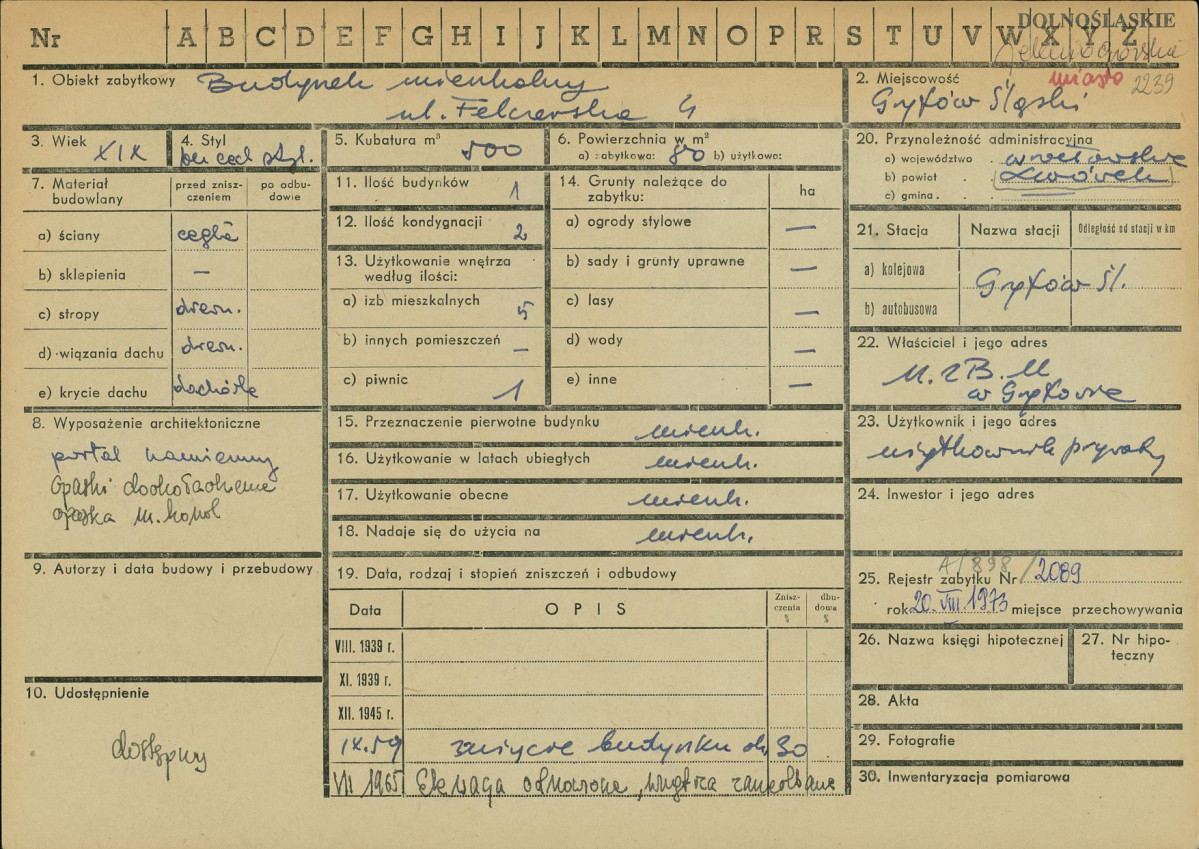 Nr A B C D E F G H I J K L M N O P R S T U V W X Y Z
DOLNOŚLĄSKIE
miasto 2239
1. Obiekt zabytkowy Budynek mieszkalny
ul. Felczerska 4
2. Miejscowość
Gryfów Śląski
3. Wiek XIX
4. Styl
bez cech styl.
5. Kubatura m³ 500
6. Powierzchnia w m²
a) zabytkowa: 80 b) użytkowa:
20. Przynależność administracyjna
a) województwo wrocławskie
b) powiat Lwówek
c) gmina
7. Materiał budowlany
przed zniszczeniem
po odbudowie
a) ściany cegła
b) sklepienia —
c) stropy drewn.
d) wiązania dachu drewn.
e) krycie dachu dachówka
11. Ilość budynków 1
12. Ilość kondygnacji 2
13. Użytkowanie wnętrza
według ilości:
a) izb mieszkalnych 5
b) innych pomieszczeń —
c) piwnic 1
14. Grunty należące do
zabytku:
ha
a) ogrody stylowe —
b) sady i grunty uprawne —
c) lasy —
d) wody —
e) inne —
21. Stacja
Nazwa stacji
Odległość od stacji w km
a) kolejowa
b) autobusowa
Gryfów Śl.
22. Właściciel i jego adres
M.Z.B.M
w Gryfowie
8. Wyposażenie architektoniczne
portal kamienny
opaski dookoła okienne
opaska m. kond
15. Przeznaczenie pierwotne budynku mieszk.
16. Użytkowanie w latach ubiegłych mieszk.
17. Użytkowanie obecne mieszk.
18. Nadaje się do użycia na mieszk.
23. Użytkownik i jego adres
użytkownik prywatny
24. Inwestor i jego adres
9. Autorzy i data budowy i przebudowy
10. Udostępnienie
dostępny
19. Data, rodzaj i stopień zniszczeń i odbudowy
Data
OPIS
Zniszczenia %
dbudowa %
VIII. 1939 r.
XI. 1939 r.
XII. 1945 r.
IX.59 zużycie budynku ok. 30
VII 1965 odnowiona, wnętrza
25. Rejestr zabytku Nr A/898/2089
rok 20. VIII. 1973 miejsce przechowywania
26. Nazwa księgi hipotecznej
27. Nr hipoteczny
28. Akta
29. Fotografie
30. Inwentaryzacja pomiarowa